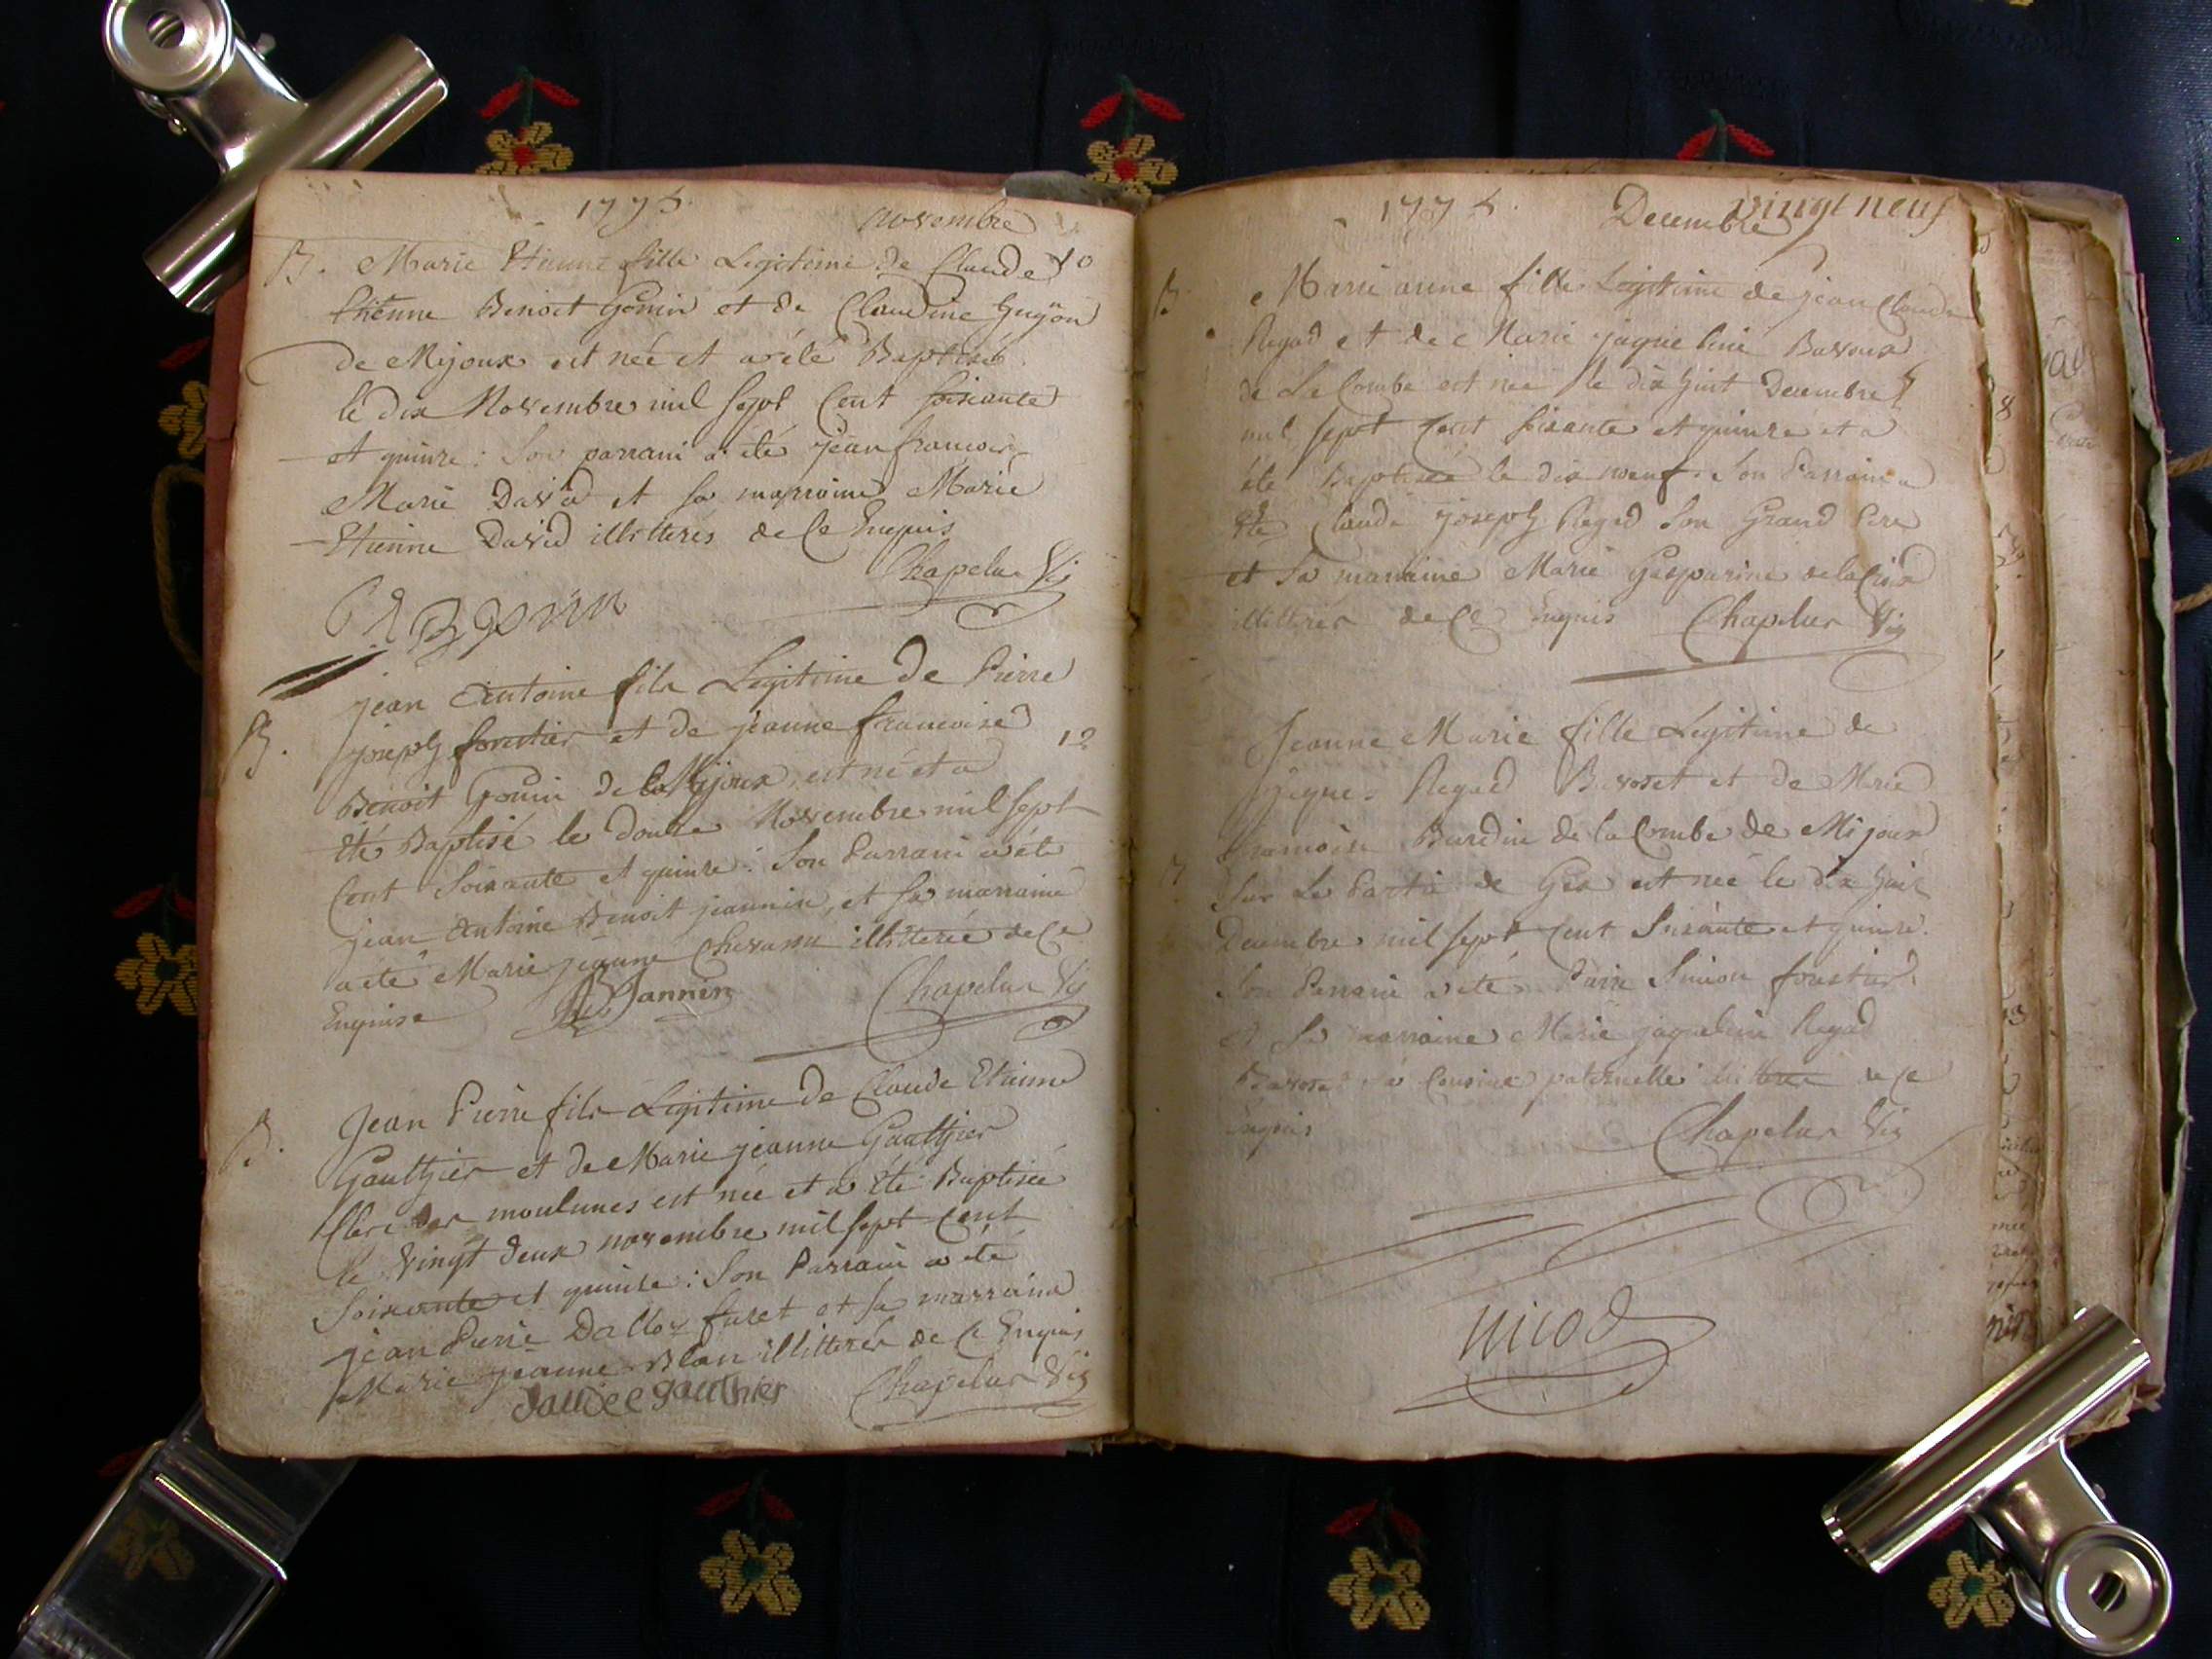 1775. novembre
B. Marie Etienne fille Legitime de Claude 10
Etienne Benoit Gonin et de Claudine Guÿon
de Mijoux est née et a été Baptisée
le dix Novembre mil sept Cent soixante
et quinze : Son parrain a été jean francois
Marie David et sa marraine Marie
Etienne David illitterés de Ce Enquis
Chapelus Vic
jean Antoine fils Legitime de Pierre
B. joseph forestier et de jeanne francoise 12
Benoit Gonin de la Mijoux, est né et a
été Baptisé le douze Novembre mil sept
Cent soixante et quinze : Son Parrain a été
jean Antoine Benoit jeannin, et sa marraine
a été Marie jeanne Chevassu illitterée de Ce
Enquise Jannin Chapelus Vic
Jean Pierre fils Legitime de Claude Etienne
B. Gaulthier et de Marie jeanne Gaulthier
Clerc des moulunes est née et a été Baptisée
le Vingt deux novembre mil sept Cent
soixante et quinze : Son Parrain a été
jean Pierre Dalloz furet et sa marraine
Marie jeanne Blan illitterés de Ce Enquis
gauthier Chapelus Vic
1775. Decembre vingt neuf
B. Marie anne fille Legitime de jean Claude
Regad et de Marie jaqueline Bavoux
de La Combe est née le dix huit Decembre
mil sept Cent soixante et quinze et a
été Baptisée le dix noeuf. Son Parrain a
été Claude joseph Regad Son Grand Pere
et Sa marraine Marie Gasparine de la Croix
illitterés de Ce Enquis Chapelus Vic
Jeanne Marie fille Legitime de
jaques Regad Bavoset et de Marie
francoise Burdin de la Combe de Mijoux
B. Sur Le Partie de Gex est née le dix huit
Decembre mil sept Cent Soixante et quinze.
Son Parrain a été Pierre Simon
et Sa marraine Marie jaqueline Regad
Bavoset sa Cousine paternelle illitterés de Ce
Enquis
Chapelus Vic
nicod